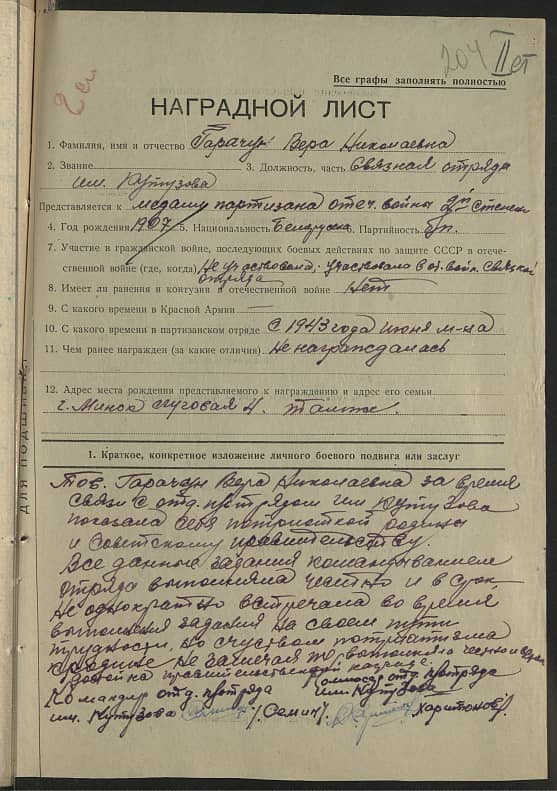 204 II ст
Все графы заполнять полностью
2 ст
НАГРАДНОЙ ЛИСТ
1. Фамилия, имя и отчество Гарачун Вера Николаевна
2. Звание 3. Должность, часть Связная отряда
им. Кутузова
Представляется к медалу партизана отеч. войны 2ой степени
4. Год рождения 1907 5. Национальность Белоруска Партийность бп.
7. Участие в гражданской войне, последующих боевых действиях по защите СССР в отече-
ственной войне (где, когда) Не участвовала; участвовала в от. войн. связной
отряда
8. Имеет ли ранения и контузии в отечественной войне Нет
9. С какого времени в Красной Армии —
10. С какого времени в партизанском отряде С 1943 года июня м-ца
11. Чем ранее награжден (за какие отличия) Не награждалась
12. Адрес места рождения представляемого к награждению и адрес его семьи
г. Минск Луговая 4. также.
ДЛЯ ПОДШИВКИ
1. Краткое, конкретное изложение личного боевого подвига или заслуг
Тов. Гарачун Вера Николаевна за время
связи с отд. п-отрядом им Кутузова
показала себя патриоткой родины
и Советскому правительству.
Все данные задания командыванием
отряда выполняла честно и в срок
Не однократно встречала во время
выполнения задания на своем пути
трудности, но с чуством патриатизма
к родине не замечая их выполняла честно и
достойна правительственной награде.
Командир отд. п-отряда Комисар отд. п-отряда
им. Кутузова /Семин/. им Кутузова Харитонов/